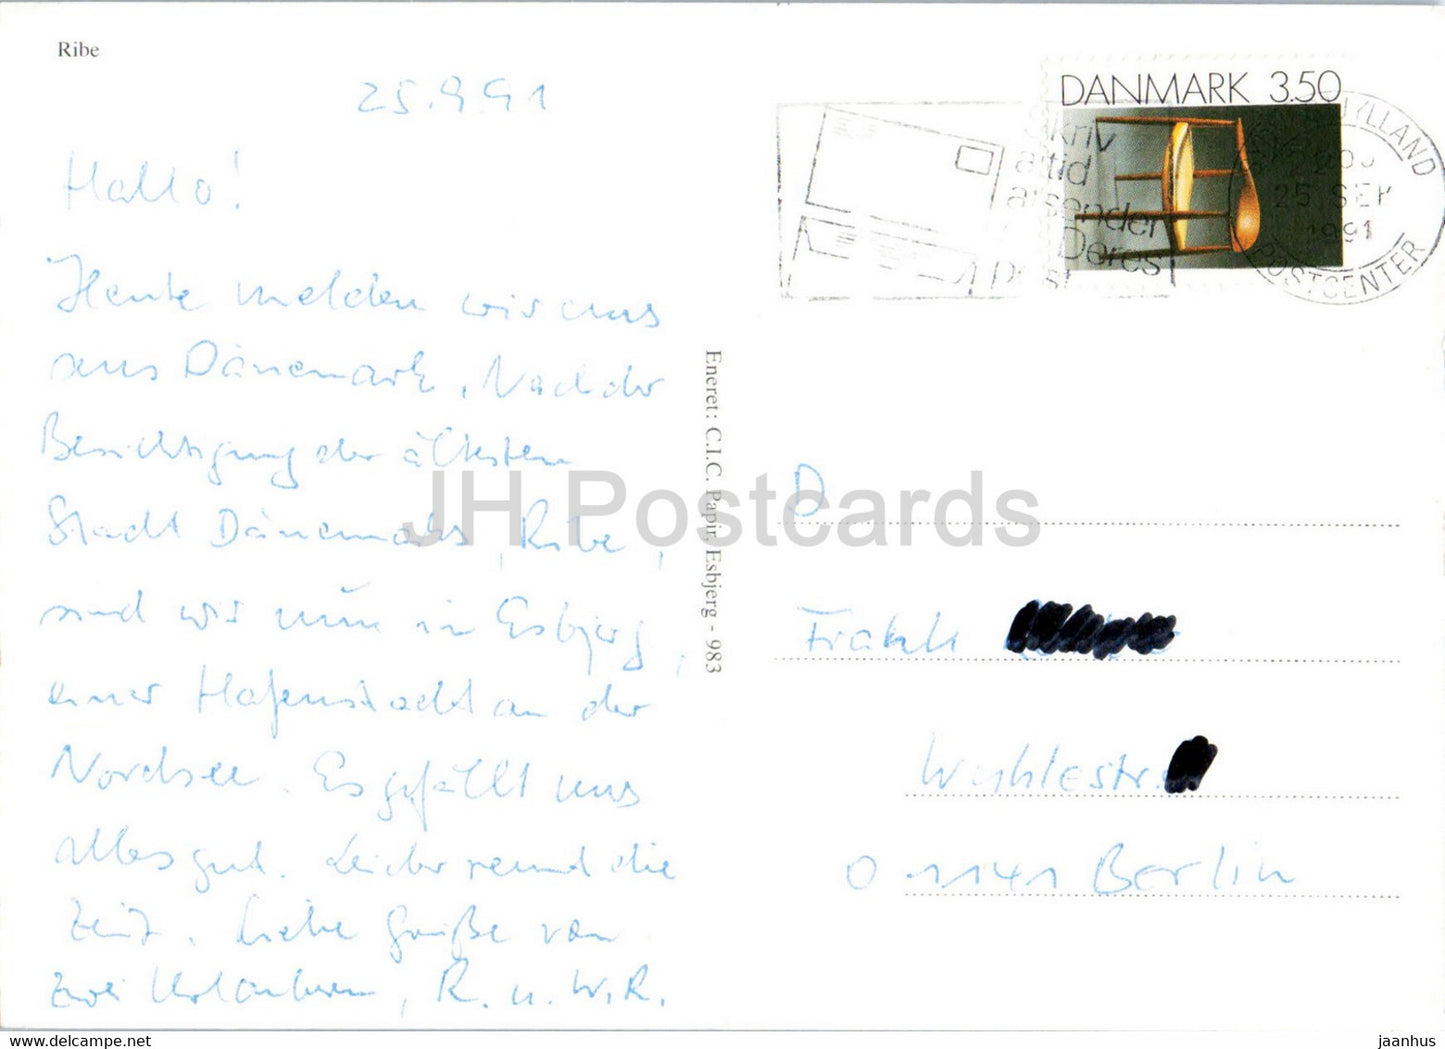 Ribe
25.9.91
Hallo!
Heute melden wir uns
aus Dänemark. Nach der
Besichtigung der ältesten
Stadt Dänemarks, Ribe,
sind wir nun in Esbjerg,
einer Hafenstadt an der
Nordsee. Es gefällt uns
alles gut. Leider rennt die
Zeit. Liebe Grüße von
zwei Urlaubern, R. u. W. R.
Eneret: C.I.C. Papir, Esbjerg - 983
DANMARK 3.50
Skriv
altid
afsender
på Deres
post
JYLLAND
25 SEP
1991
POSTCENTER
D
Wuhlestr.
O 1141 Berlin
JH Postcards
www.hippostcard.com
jaanhus